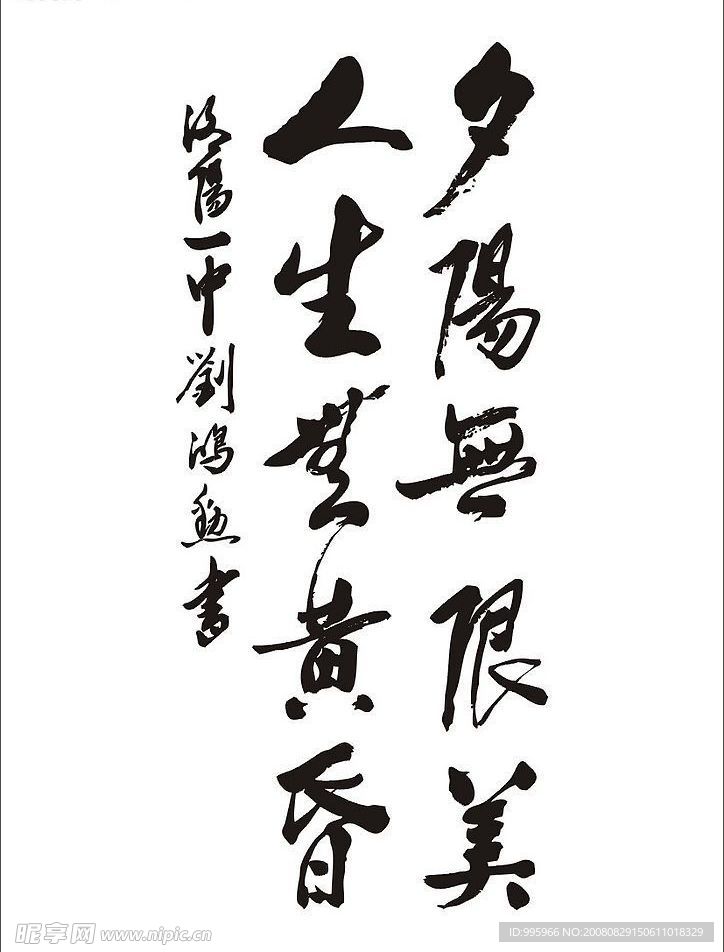 夕陽無限美
人生無黄昏
汝陽一中劉鴻勳書
昵享网 www.nipic.cn
ID:995966 NO:20080829150611018329